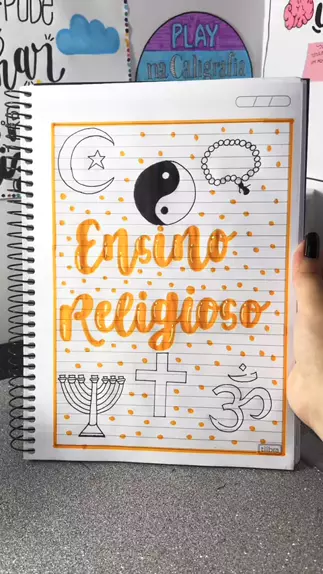 PUDE
PLAY
na Caligrafia
Ensino
Religioso
tilibra